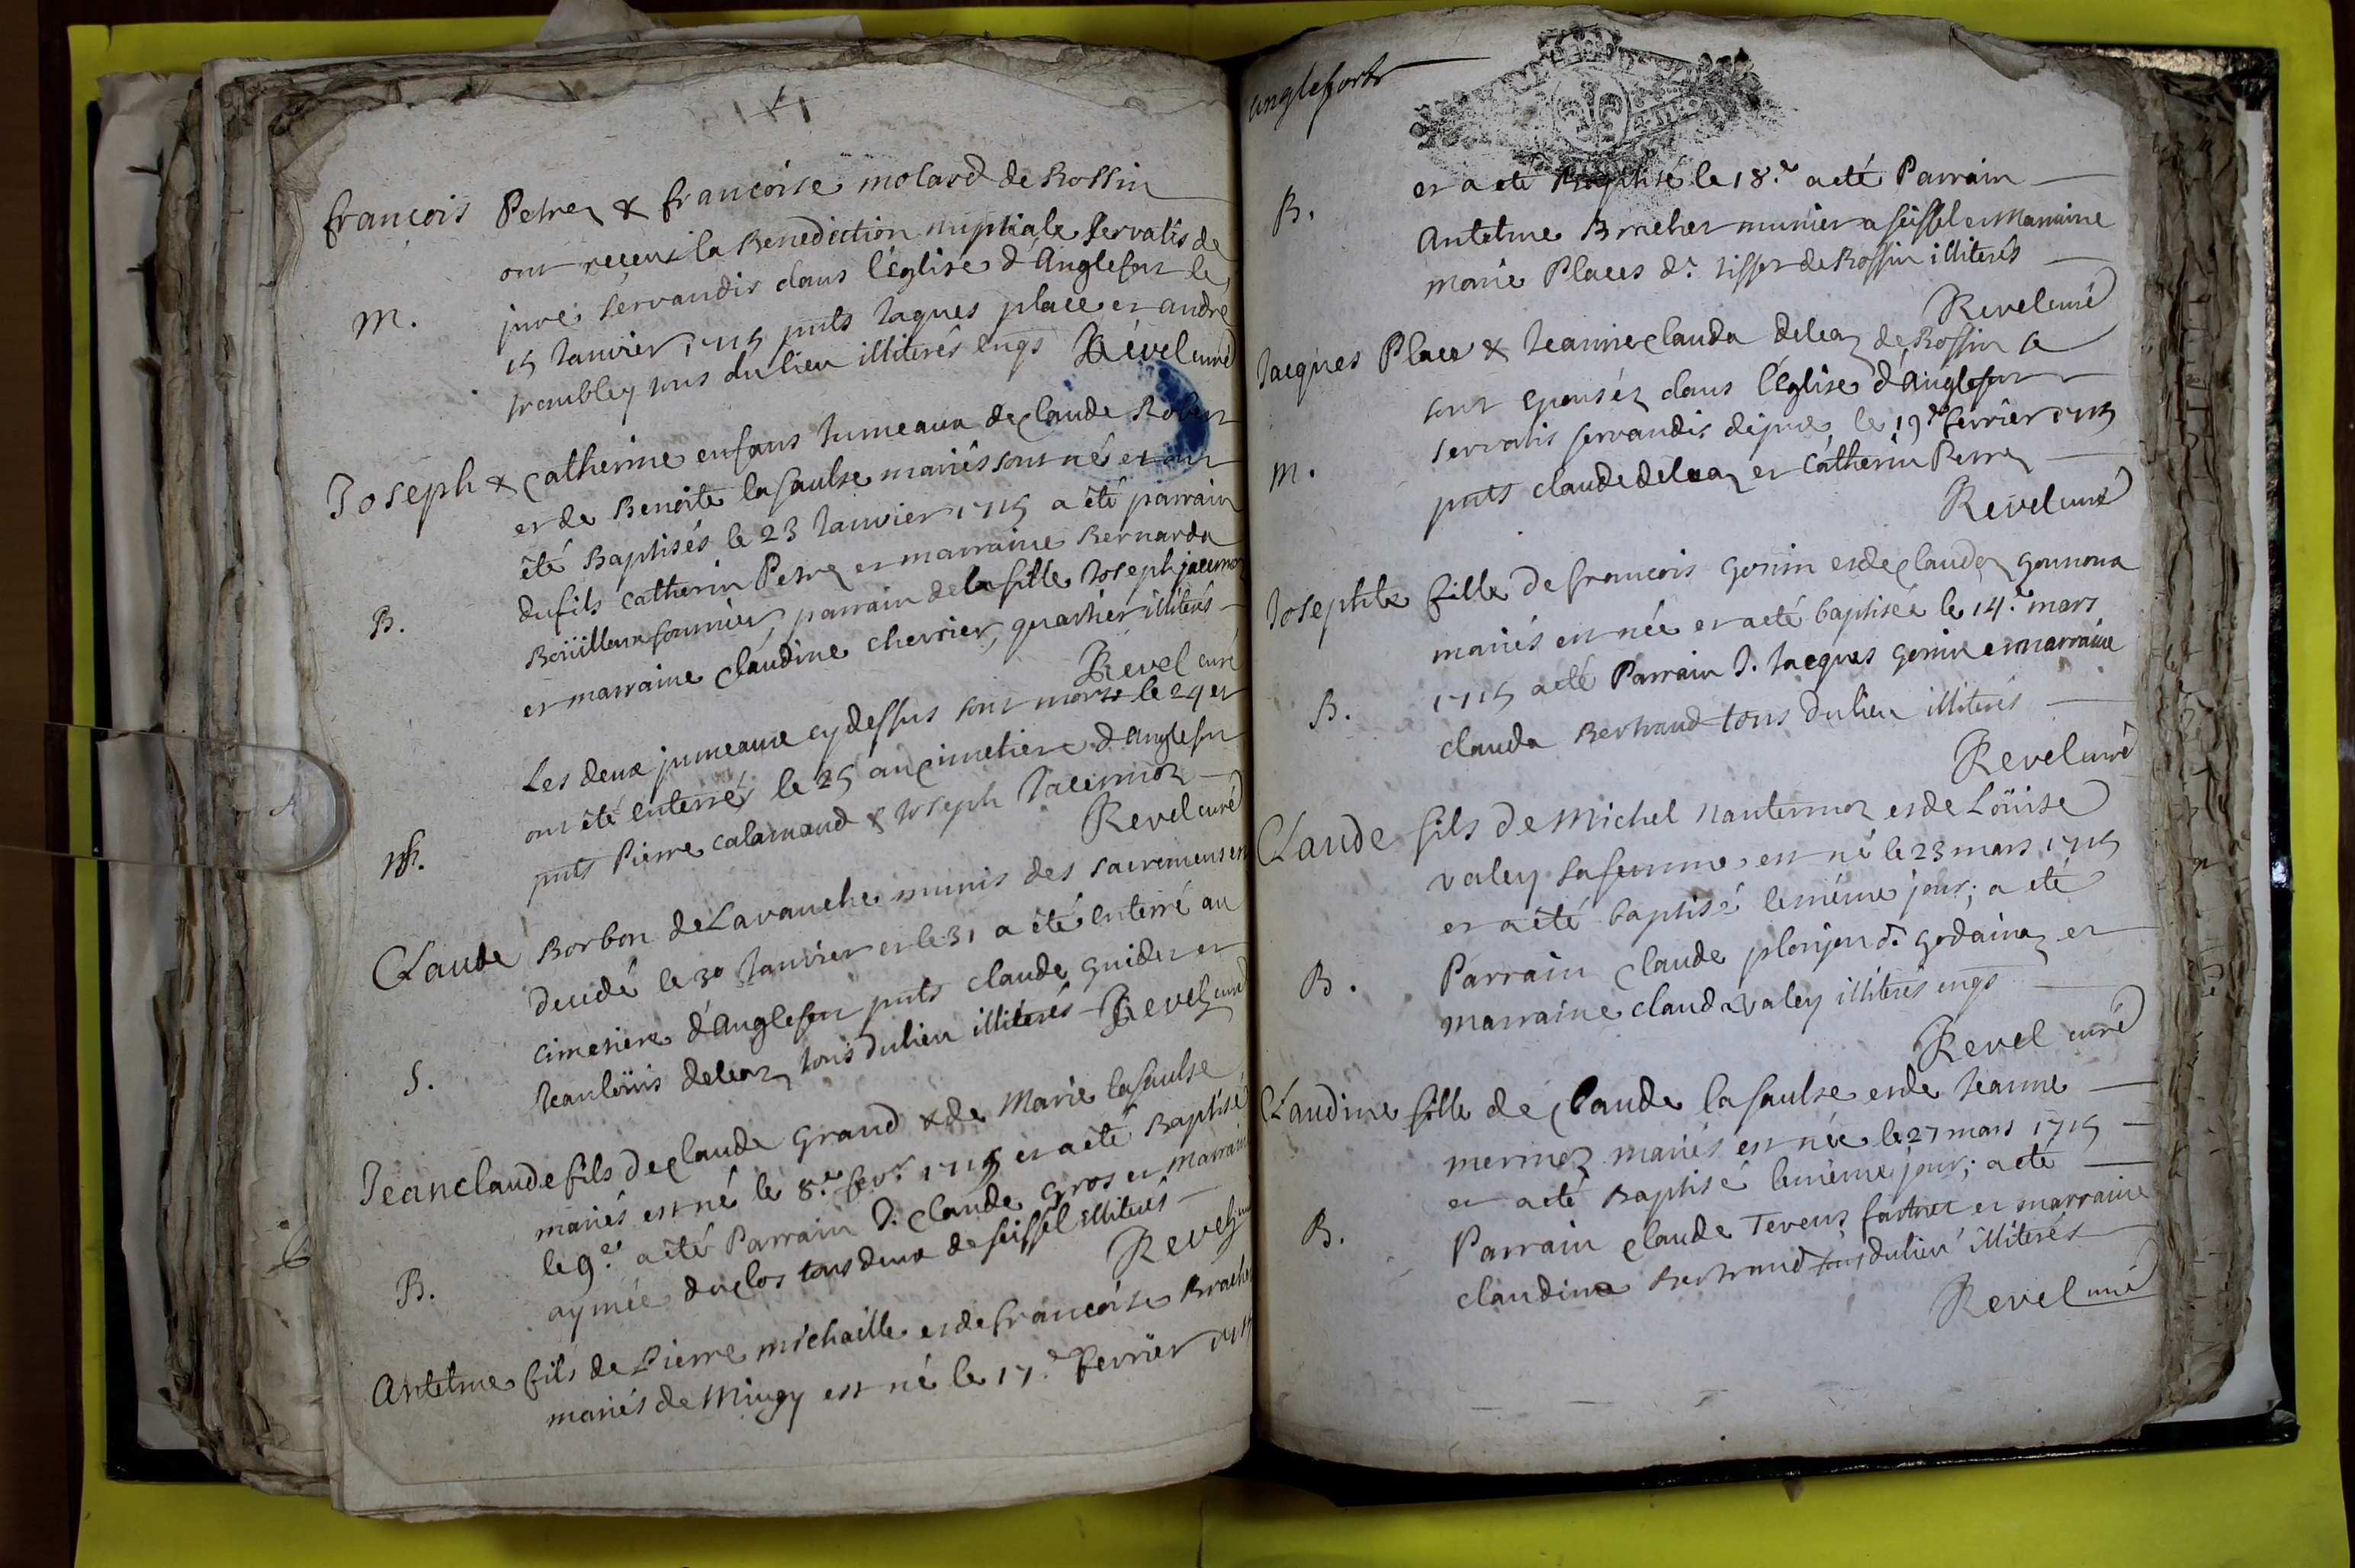 françois Petrez & françoise molard de Rossin
ont receu la Benediction nuptiale servatis de
jure servandis dans l'église d'Anglefort le
M.
15 Janvier 1715 pnts Jaques place et andré
trombley tous du lieu illiterés enqs Revel curé
Joseph & Catherine enfans Jumeaux de Claude Robert
et de Benoite lasaulse mariés sont nés et ont
été Baptisés le 23 Janvier 1715 a été parrain
du fils Catherin Petrez et marraine Bernarda
B.
parrain de la fille Joseph jacemoz
et marraine Claudine chevrier, illiterés
Revel curé
Les deux jumeaux cy dessus sont morts le 24 et
ont été enterrés le 25 au cimetiere d'Anglefort
pnts Pierre Calamand & Joseph Jacemoz
Revel curé
Claude Borbon de Lavanche munis des sacremens est
decedé le 30 Janvier et le 31 a été enterré au
cimetiere d'Anglefort pnts claude guider et
S.
Jeanloüis deleaz tous du lieu illiterés Revel curé
Jeanclaude fils de Claude Grand & de Marie lasaulse
mariés est né le 8.e fevr. 1715 et a été Baptisé
le 9.e a été Parrain D. Claude gros et Marraine
B.
aymée duclos tous deux de seissel illiterés
Revel curé
Antelme fils de Pierre michaille et de françoise Bracher
mariés de Mingy est né le 17.e Fevrier 1715
Anglefort
et a été Baptisé le 18.e a été Parrain
B.
Antelme Bracher munier a seissel et Marraine
marie Places de Rossin illiterés
Revel curé
Jacques Place & Jeanne clauda deleaz de Rossin se
sont epousés dans l'Eglise d'Anglefort
servatis servandis dejure le 19.e fevrier 1715
M.
pnts claude deleaz et Catherin Petrez
Revel curé
Josephte fille de françois gonin et de Claudaz gonnoux
mariés est née et a été baptisée le 14.e mars
1715 a été Parrain J. Jacques gonin et marraine
B.
clauda Bertrand tous du lieu illiterés
Revel curé
Claude fils de Michel Nantermoz et de Loüise
valey sa femme est né le 23 mars 1715
et a été baptisé le même jour; a été
Parrain Claude plonjon de godainaz et
B.
marraine clauda valey illiterés enqs
Revel curé
Claudine fille de Claude lasaulse et de Jeanne
mermoz mariés est née le 27 mars 1715
et a été Baptisé le même jour; a été
B.
Parrain Claude Tevens et marraine
claudine Bertrand tous du lieu illiterés
Revel curé